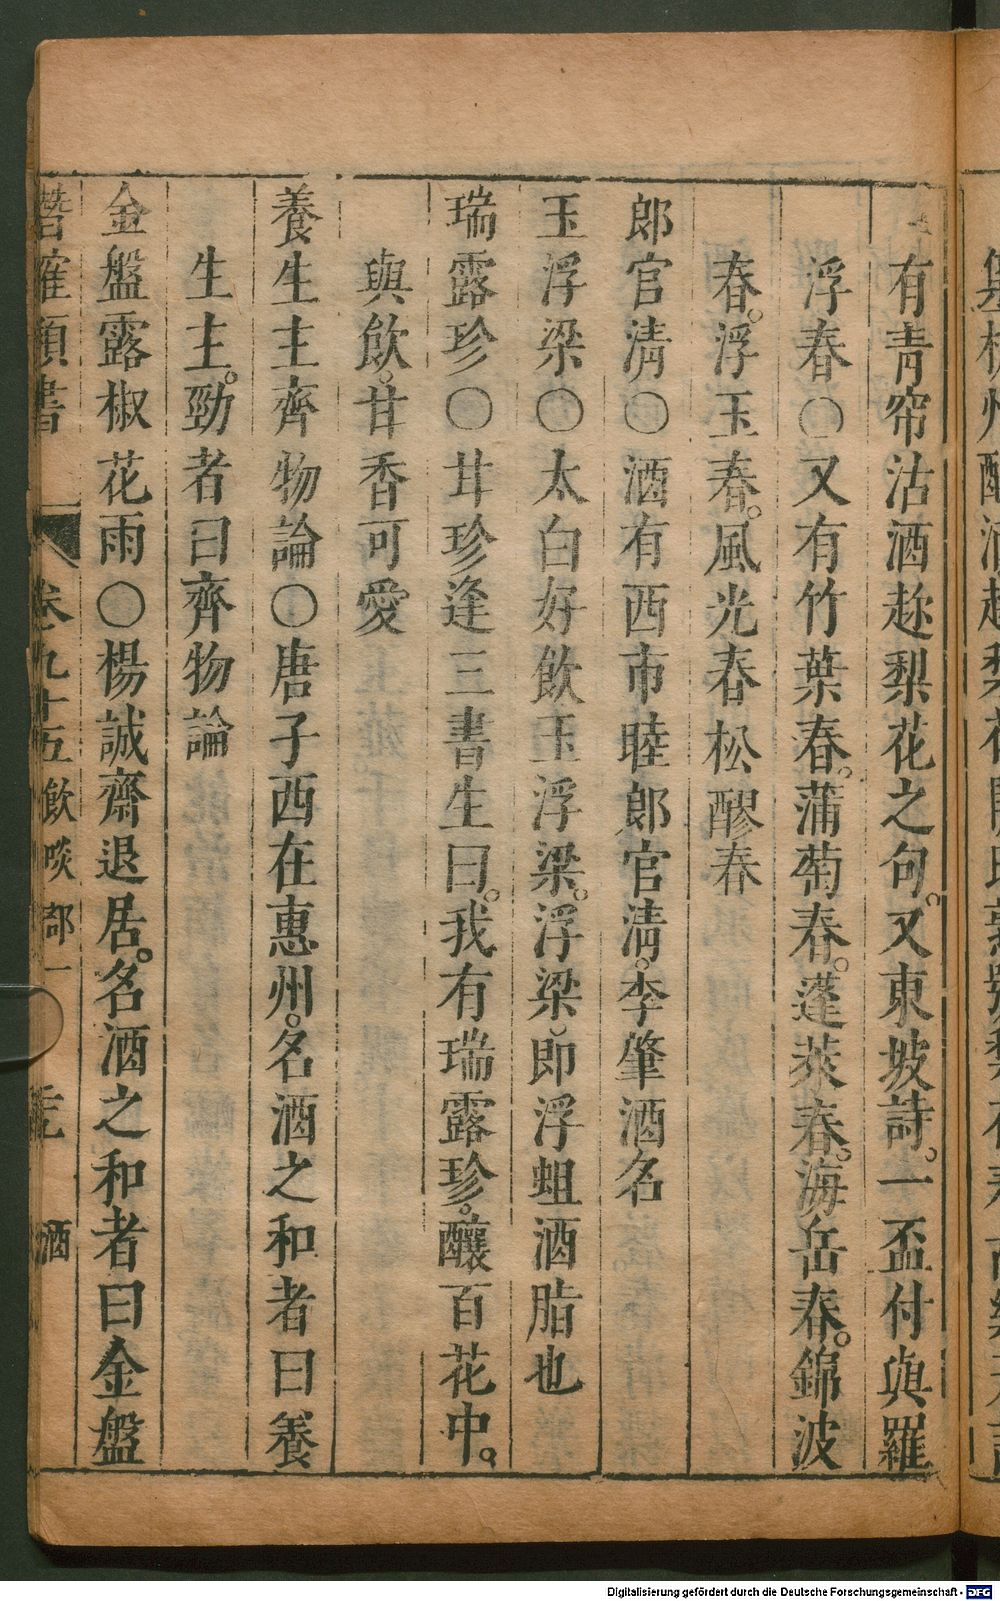 有青帘沽酒趂梨花之句。又東坡詩。一盃付與羅
浮春○又有竹葉春。蒲萄春。蓬萊春。海岳春。錦波
春。浮玉春。風光春松醪春
郎官清○酒有西市䏏郎官清。李肇酒名
玉浮梁○太白好飲玉浮梁。浮梁即浮蛆酒脂也
瑞露珍○甘珍逢三書生曰。我有瑞露珍。釀百花中。
與飲。甘香可愛
養生主齊物論○唐子西在惠州。名酒之和者曰養
生主。勁者曰齊物論
金盤露椒花雨○楊誠齋退居。名酒之和者曰金盤
卷九十五飲啖部一 酒
Digitalisierung gefördert durch die Deutsche Forschungsgemeinschaft - DFG